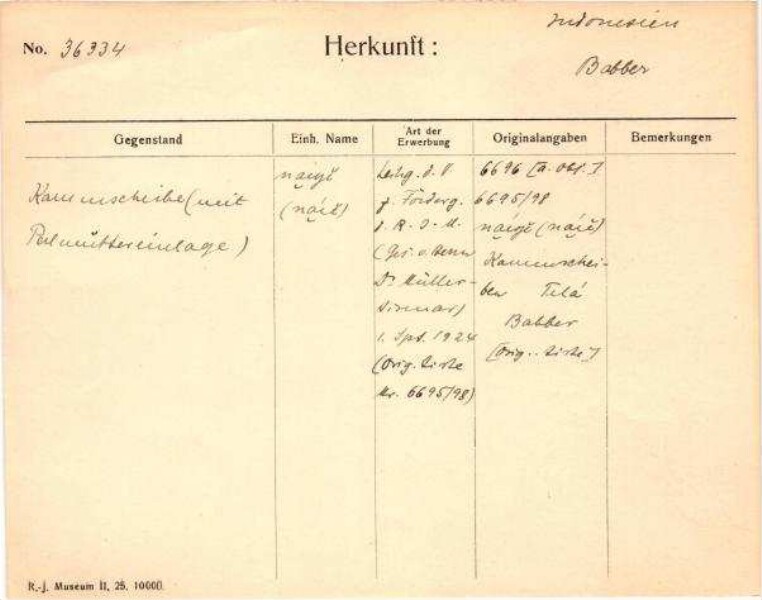 Indonesien
No. 36334 Herkunft: Babber
Gegenstand Einh. Name Art der Erwerbung Originalangaben Bemerkungen
Kammscheibe (mit
Perlmuttereinlage)
(náiĕ)
d. V.
z. Förderg.
d. R-J-M.
(Ges. v. Herrn
Dr Müller-
Wismar)
1. Spt. 1924
(Orig. Liste
Nr. 6695/98)
6696 [a. Obj.]
6695/98
(náiĕ)
Kammschei-
ben Telá
Babber
[Orig.-Liste]
R.-J. Museum II, 25. 10000.